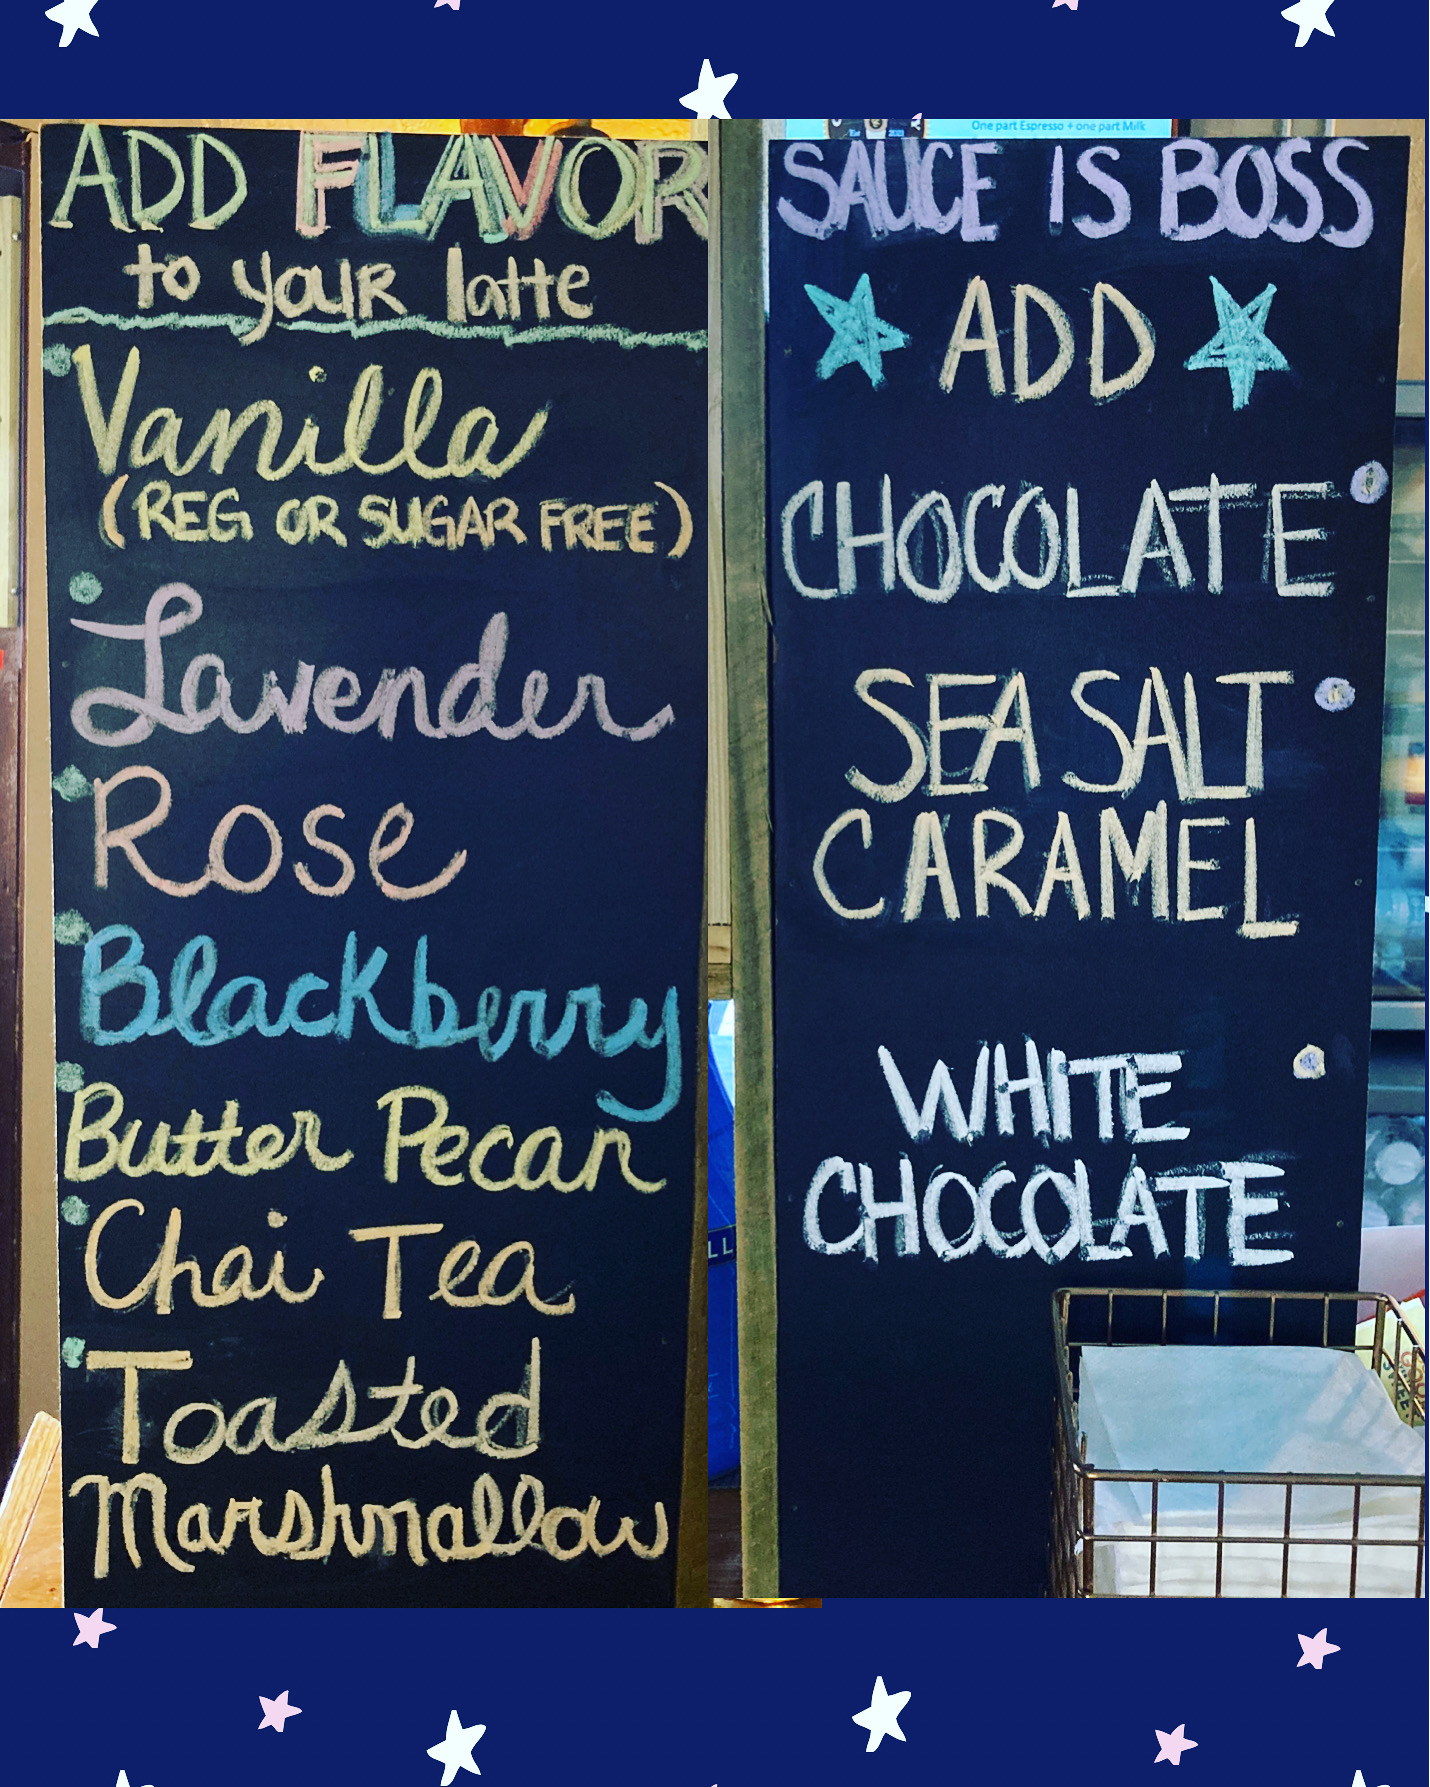 ADD FLAVOR
to your latte
Vanilla
(REG OR SUGAR FREE)
Lavender
Rose
Blackberry
Butter Pecan
Chai Tea
Toasted
Marshmallow
One part Espresso + one part Milk
SAUCE IS BOSS
ADD
CHOCOLATE
SEA SALT
CARAMEL
WHITE
CHOCOLATE